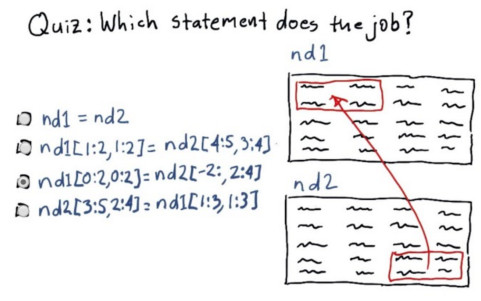 Quiz: Which statement does the job?
nd1
nd1 = nd2
nd1[1:2,1:2]= nd2[4:5,3:4]
nd1[0:2,0:2]=nd2[-2:,2:4]
nd2
nd2[3:5,2:4]=nd1[1:3,1:3]